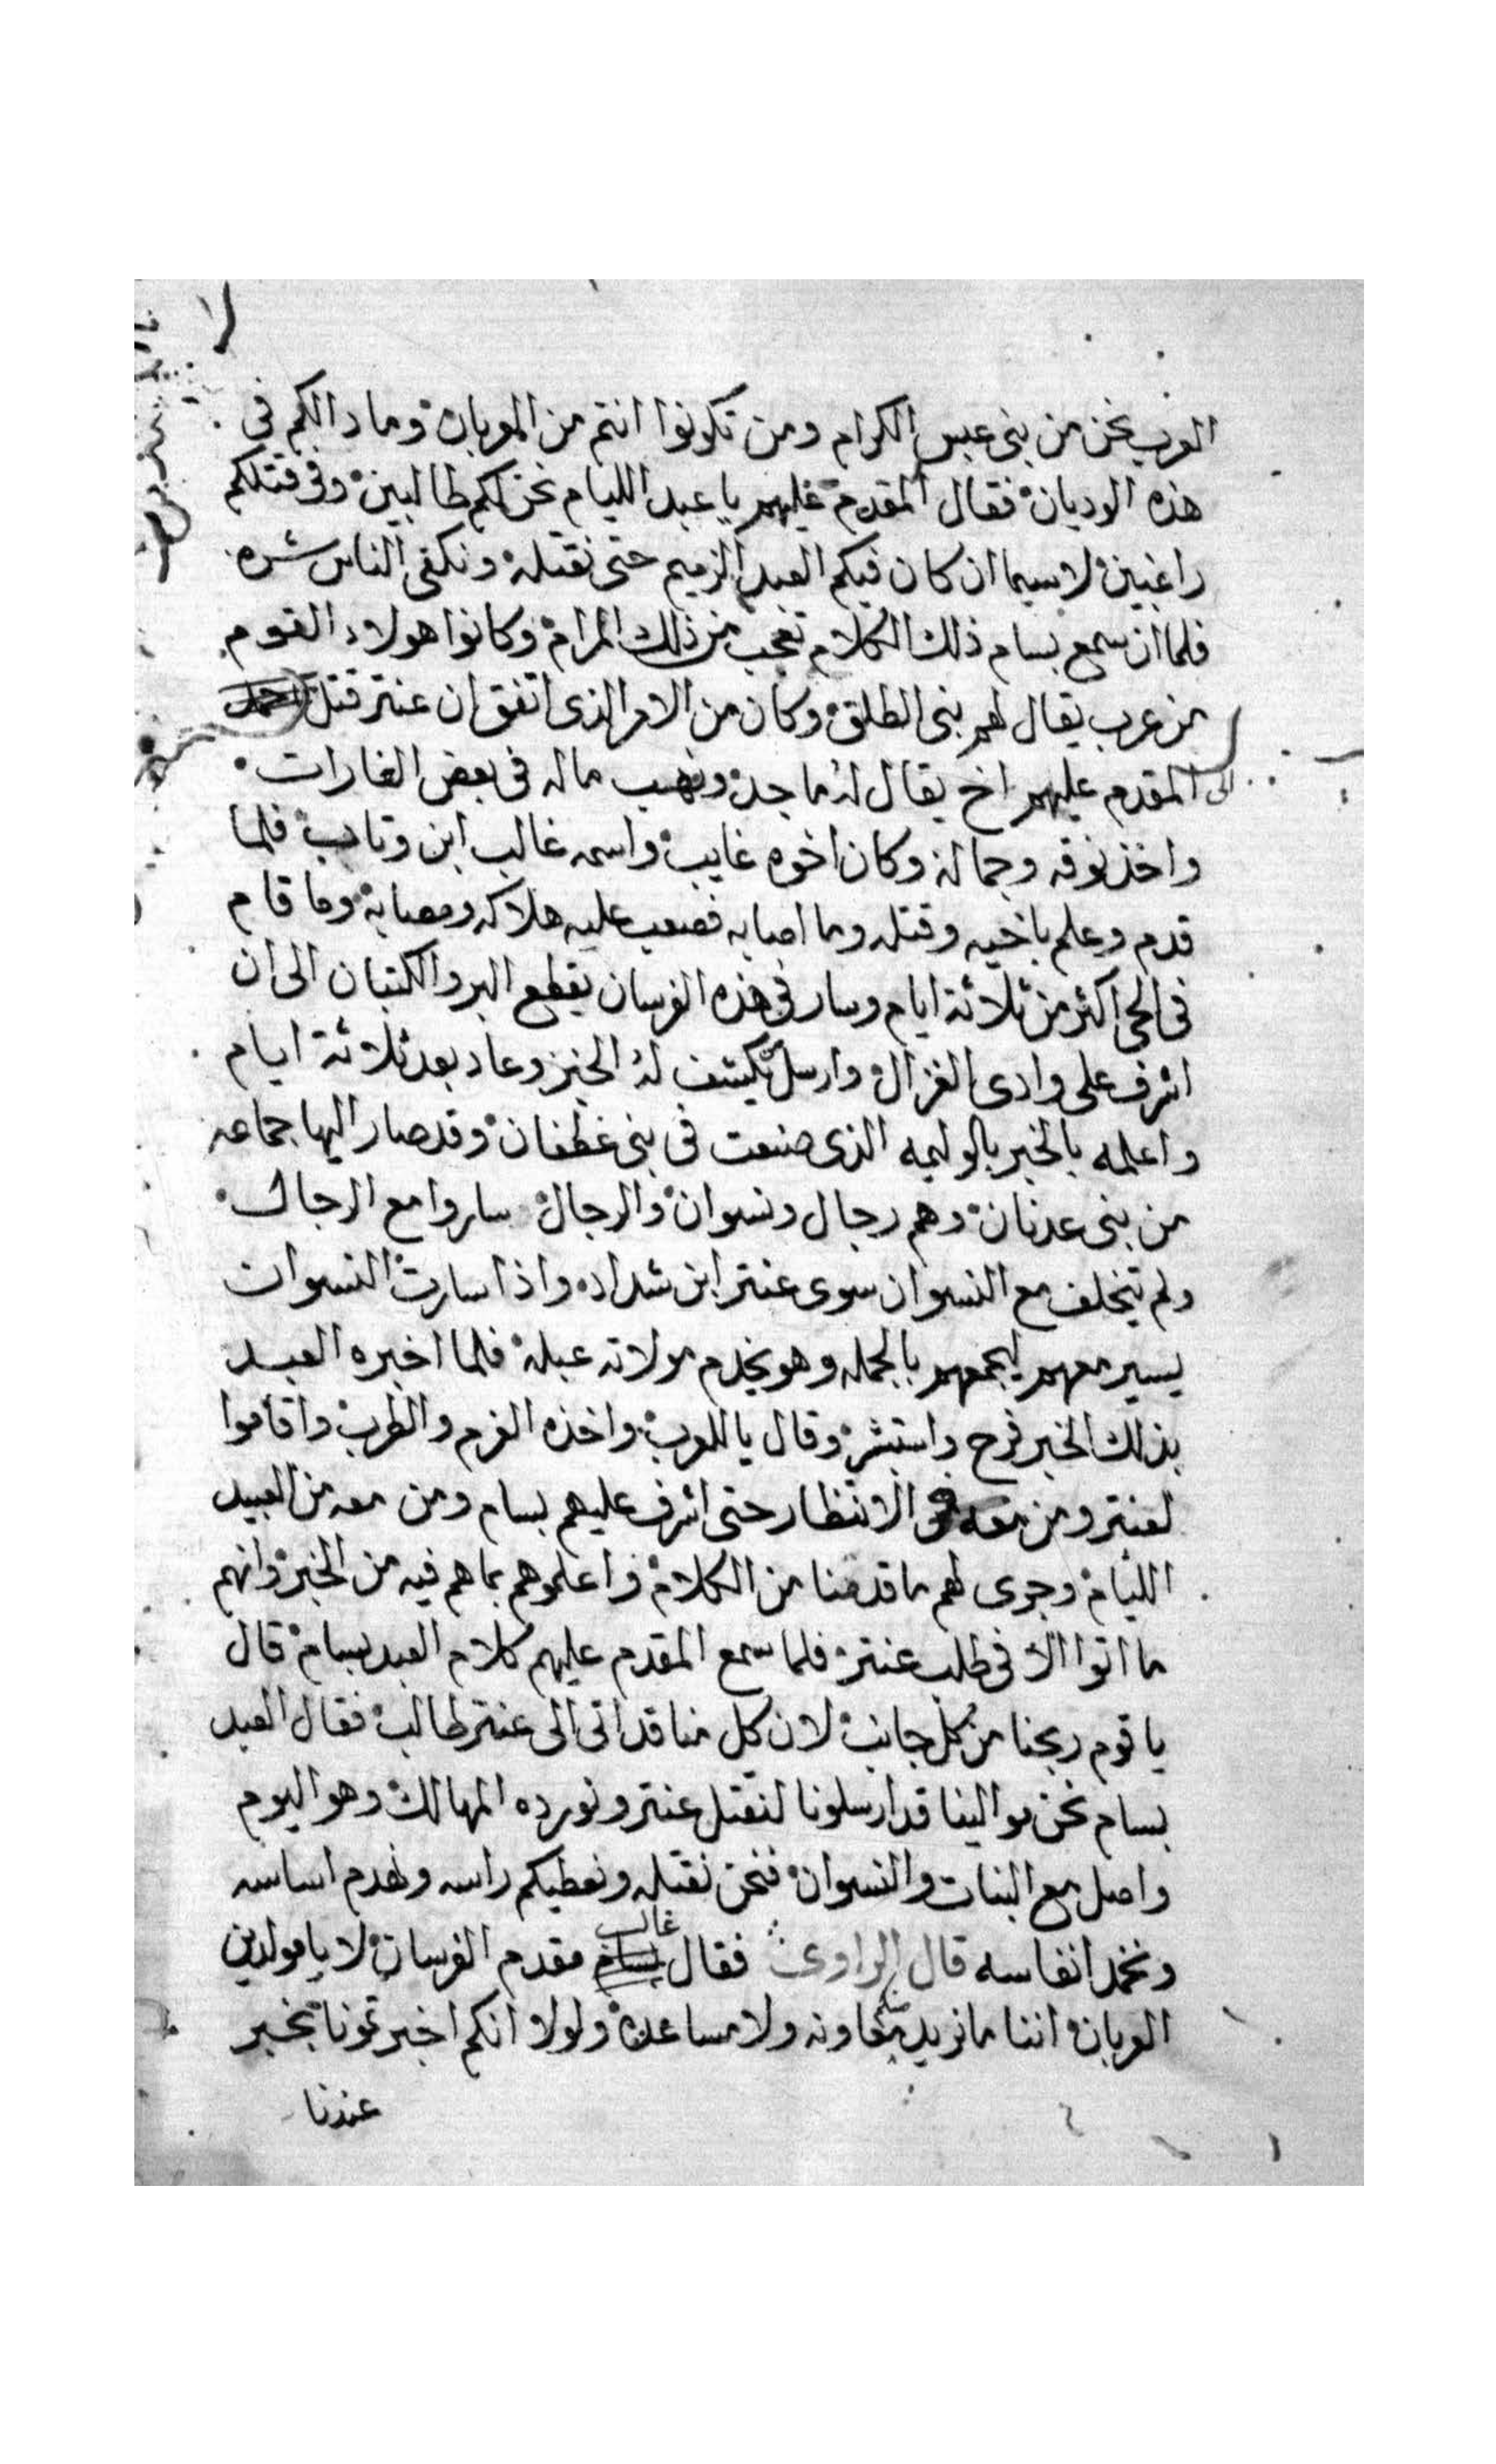 العرب نحن من بني عبس الكرام ومن تكونوا انتم من العربان وما دالكم في
هذه الوديان فقال المقدم عليهم يا عبد الليام نحن لكم طالبين وفي قتلكم
راغبين لاسيما ان كان فيكم العبد الزميم حتى نقتله ونكفى الناس شره
فلما ان سمع بسام ذلك الكلام تعجب من ذلك المرام وكانوا هولاء القوم
من عرب يقال لهم بني الطلق وكان من الامر الذى اتفق ان عنتر قتل
الى المقدم عليهم اخ يقال له ماجد ونهب ماله في بعض الغارات
واخذ نوقه وجماله وكان اخوه غايب واسمه غالب ابن وتاب فلما
قدم وعلم باخيه وقتله وما اصابه فصعب عليه هلاكه ومصابه وما قام
في الحى اكثر من ثلاثة ايام وسار في هذه الفرسان يقطع البر والكتبان الى ان
اشرف على وادى الغزال وارسل يكشف له الخبر وعاد بعد ثلاثة ايام
واعلمه بالخبر بالوليمه الذى صنعت في بني غطفان وقد صار اليها جماعه
من بنى عدنان وهم رجال ونسوان والرجال ساروا مع الرجال
ولم يتخلف مع النسوان سوى عنتر ابن شداد واذا سارت النسوان
يسير معهم ليجمعهم بالجمله وهو يخدم مولاته عبلة فلما اخبره العبد
بذلك الخبر فرح واستبشر وقال يا للعرب واخذه الفرح والطرب واقاموا
لعنتر ومن معه في الانتظار حتى اشرف عليهم بسام ومن معه من العبيد
الليام وجرى لهم ما قدمنا من الكلام واعلموهم بما هم فيه من الخبر وانهم
ما اتوا الا في طلب عنتر فلما سمع المقدم عليهم كلام العبد بسام قال
يا قوم ربحنا من كل جانب لان كل منا قد اتى الى عنتر طالب فقال العبد
بسام نحن موالينا قد ارسلونا لنقتل عنتر ونورده المهالك وهو اليوم
واصل مع البنات والنسوان فنحن نقتله ونعطيكم راسه ونهدم اساسه
ونخمد انفاسه قال الراوى فقال غالب مقدم الفرسان لا يا مولدين
العربان اننا ما نريد معاونه ولا مساعده ولولا انكم اخبرتمونا بخبر
عندنا